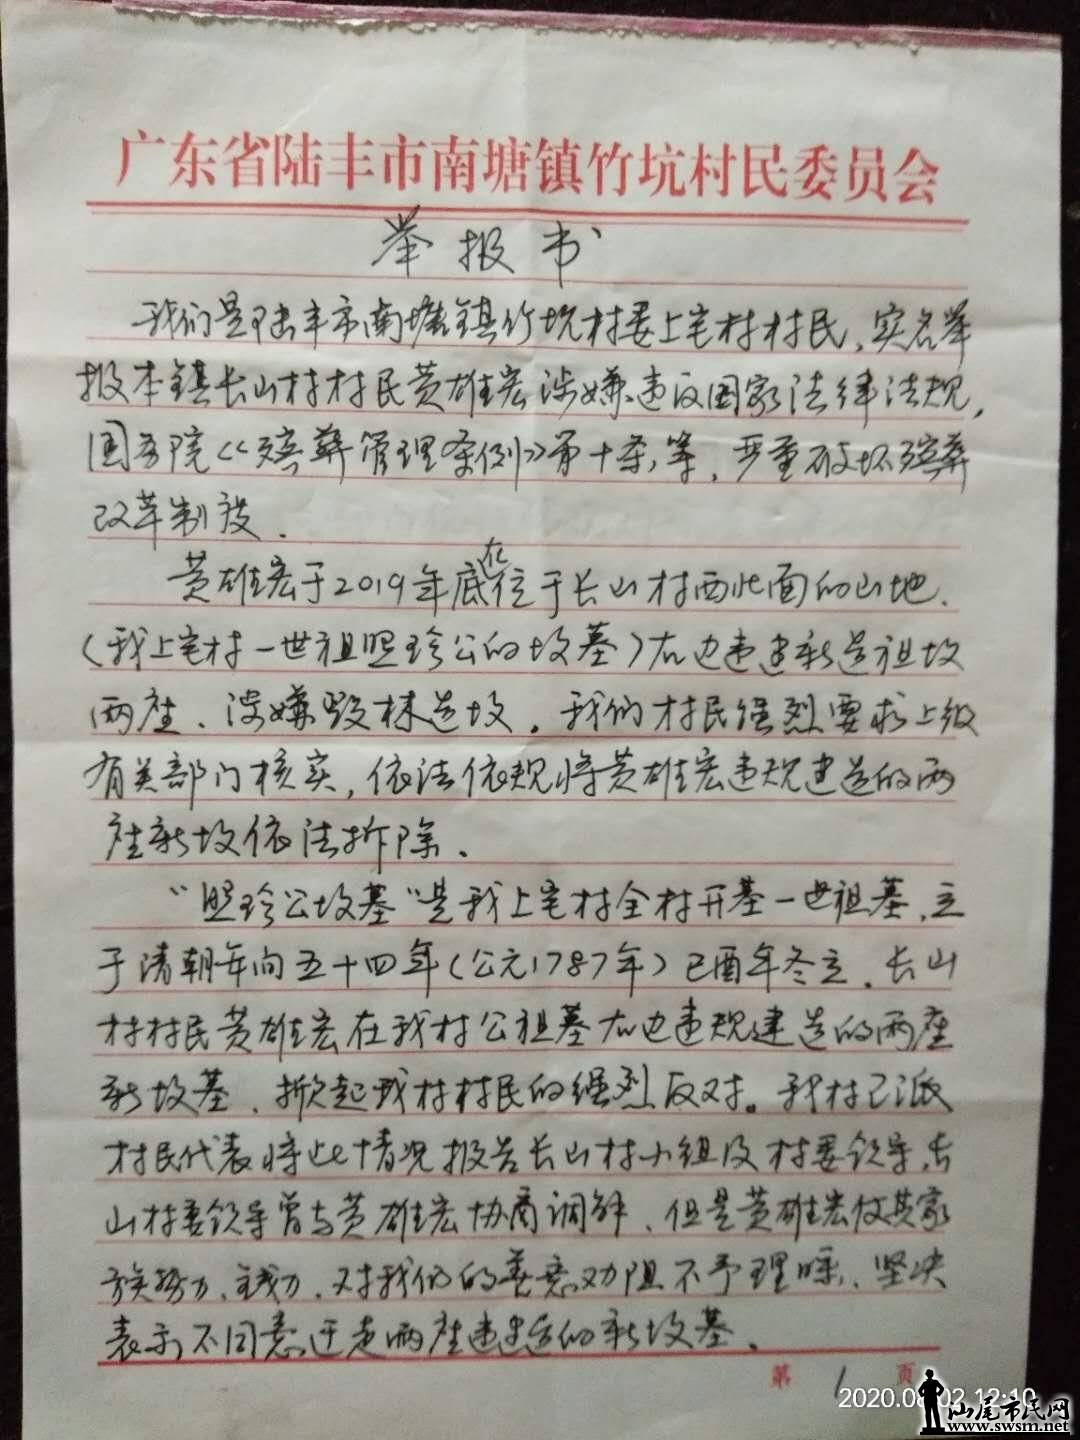 广东省陆丰市南塘镇竹坑村民委员会
举报书
我们是陆丰市南塘镇竹坑村委上宅村村民，实名举
报本镇长山村村民黄雄宏涉嫌违反国家法律法规，
国务院《殡葬管理条例》第十条等，严重破坏殡葬
改革制度.
黄雄宏于2019年底在位于长山村西北面的山地.
（我上宅村一世祖照珍公的坟墓）右边违建新造祖坟
两座、涉嫌毁林造坟。我们村民强烈要求上级
有关部门核实，依法依规将黄雄宏违规建造的两
座新坟依法拆除.
“照珍公坟墓”是我上宅村全村开基一世祖墓，立
于清朝年间五十四年（公元1787年）己酉年冬立。长山
村村民黄雄宏在我村公祖墓右边违规建造的两座
新坟墓、掀起我村村民的强烈反对。我村已派
村民代表将此情况报告长山村小组及村委领导，长
山村委领导曾与黄雄宏协商调解、但是黄雄宏仗其家
族势力、钱力、对我们的善意劝阻不予理睬、坚决
表示不同意迁走两座违建造的新坟墓。
第 1 页
2020.08.02 12:10
汕尾市民网
www.swsm.net